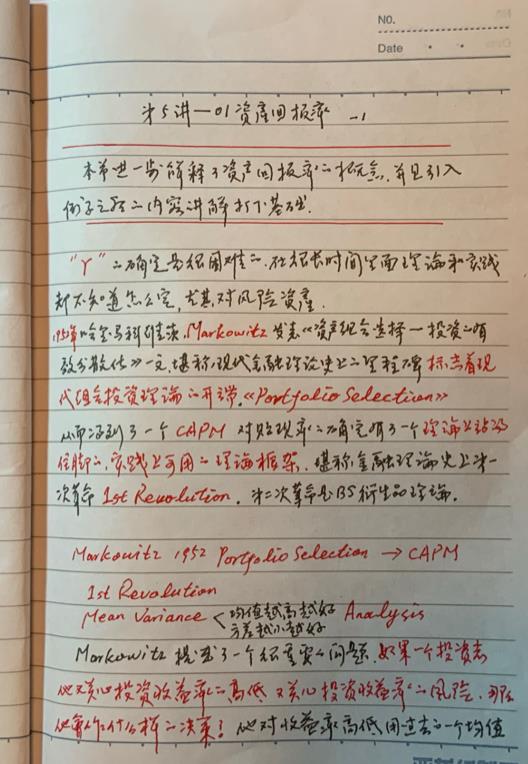 NO.
Date
第5讲—01资产回报率 -1
本节进一步解释了资产回报率的概念,并且引入
例子之后的内容讲解打下基础.
"r"的确定是很困难的.在很长时间里面理论和实践
都不知道怎么定,尤其对风险资产.
1952年哈里·马科维茨,Markowitz发表《资产组合选择—投资的有
效分散化》一文,堪称现代金融理论史上的里程碑 标志着现
代组合投资理论的开端.《Portfolio Selection》
从而得到了一个CAPM 对贴现率的确定有了一个理论上站得
住脚的,实践上可用的理论框架.堪称金融理论史上第一
次革命 1st Revolution. 第二次革命是BS衍生品理论.
Markowitz 1952 Portfolio Selection → CAPM
1st Revolution
Mean Variance < 均值越高越好 方差越小越好 Analysis
Markowitz 提出了一个很重要的问题.如果一个投资者
他又关心投资收益率的高低 又关心投资收益率的风险.那么
他会作什么样的决策! 他对收益率高低用过去的一个均值